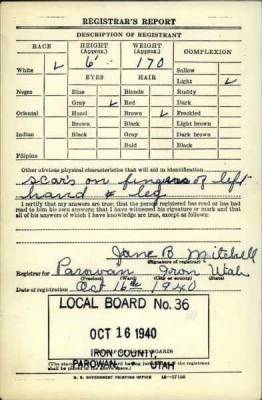 REGISTRAR'S REPORT
DESCRIPTION OF REGISTRANT
RACE HEIGHT (Approx.) WEIGHT (Approx.) COMPLEXION
6' 170
White ✓ Sallow
EYES HAIR Light ✓
Negro Blue Blonde Ruddy
Gray ✓ Red Dark
Oriental Hazel Brown ✓ Freckled
Brown Black Light brown
Indian Black Gray Dark brown
Bald Black
Filipino
Other obvious physical characteristics that will aid in identification
scars on fingers of left
hand & leg
I certify that my answers are true; that the person registered has read or has had
read to him his own answers; that I have witnessed his signature or mark and that
all of his answers of which I have knowledge are true, except as follows:
Jane B. Mitchell
(Signature of registrar)
Registrar for Parowan Iron Utah
(Precinct) (Ward) (City or county) (State)
Date of registration Oct 16th 1940
LOCAL BOARD No. 36
OCT 16 1940
IRON COUNTY,
PAROWAN, UTAH
U. S. GOVERNMENT PRINTING OFFICE 16—17105